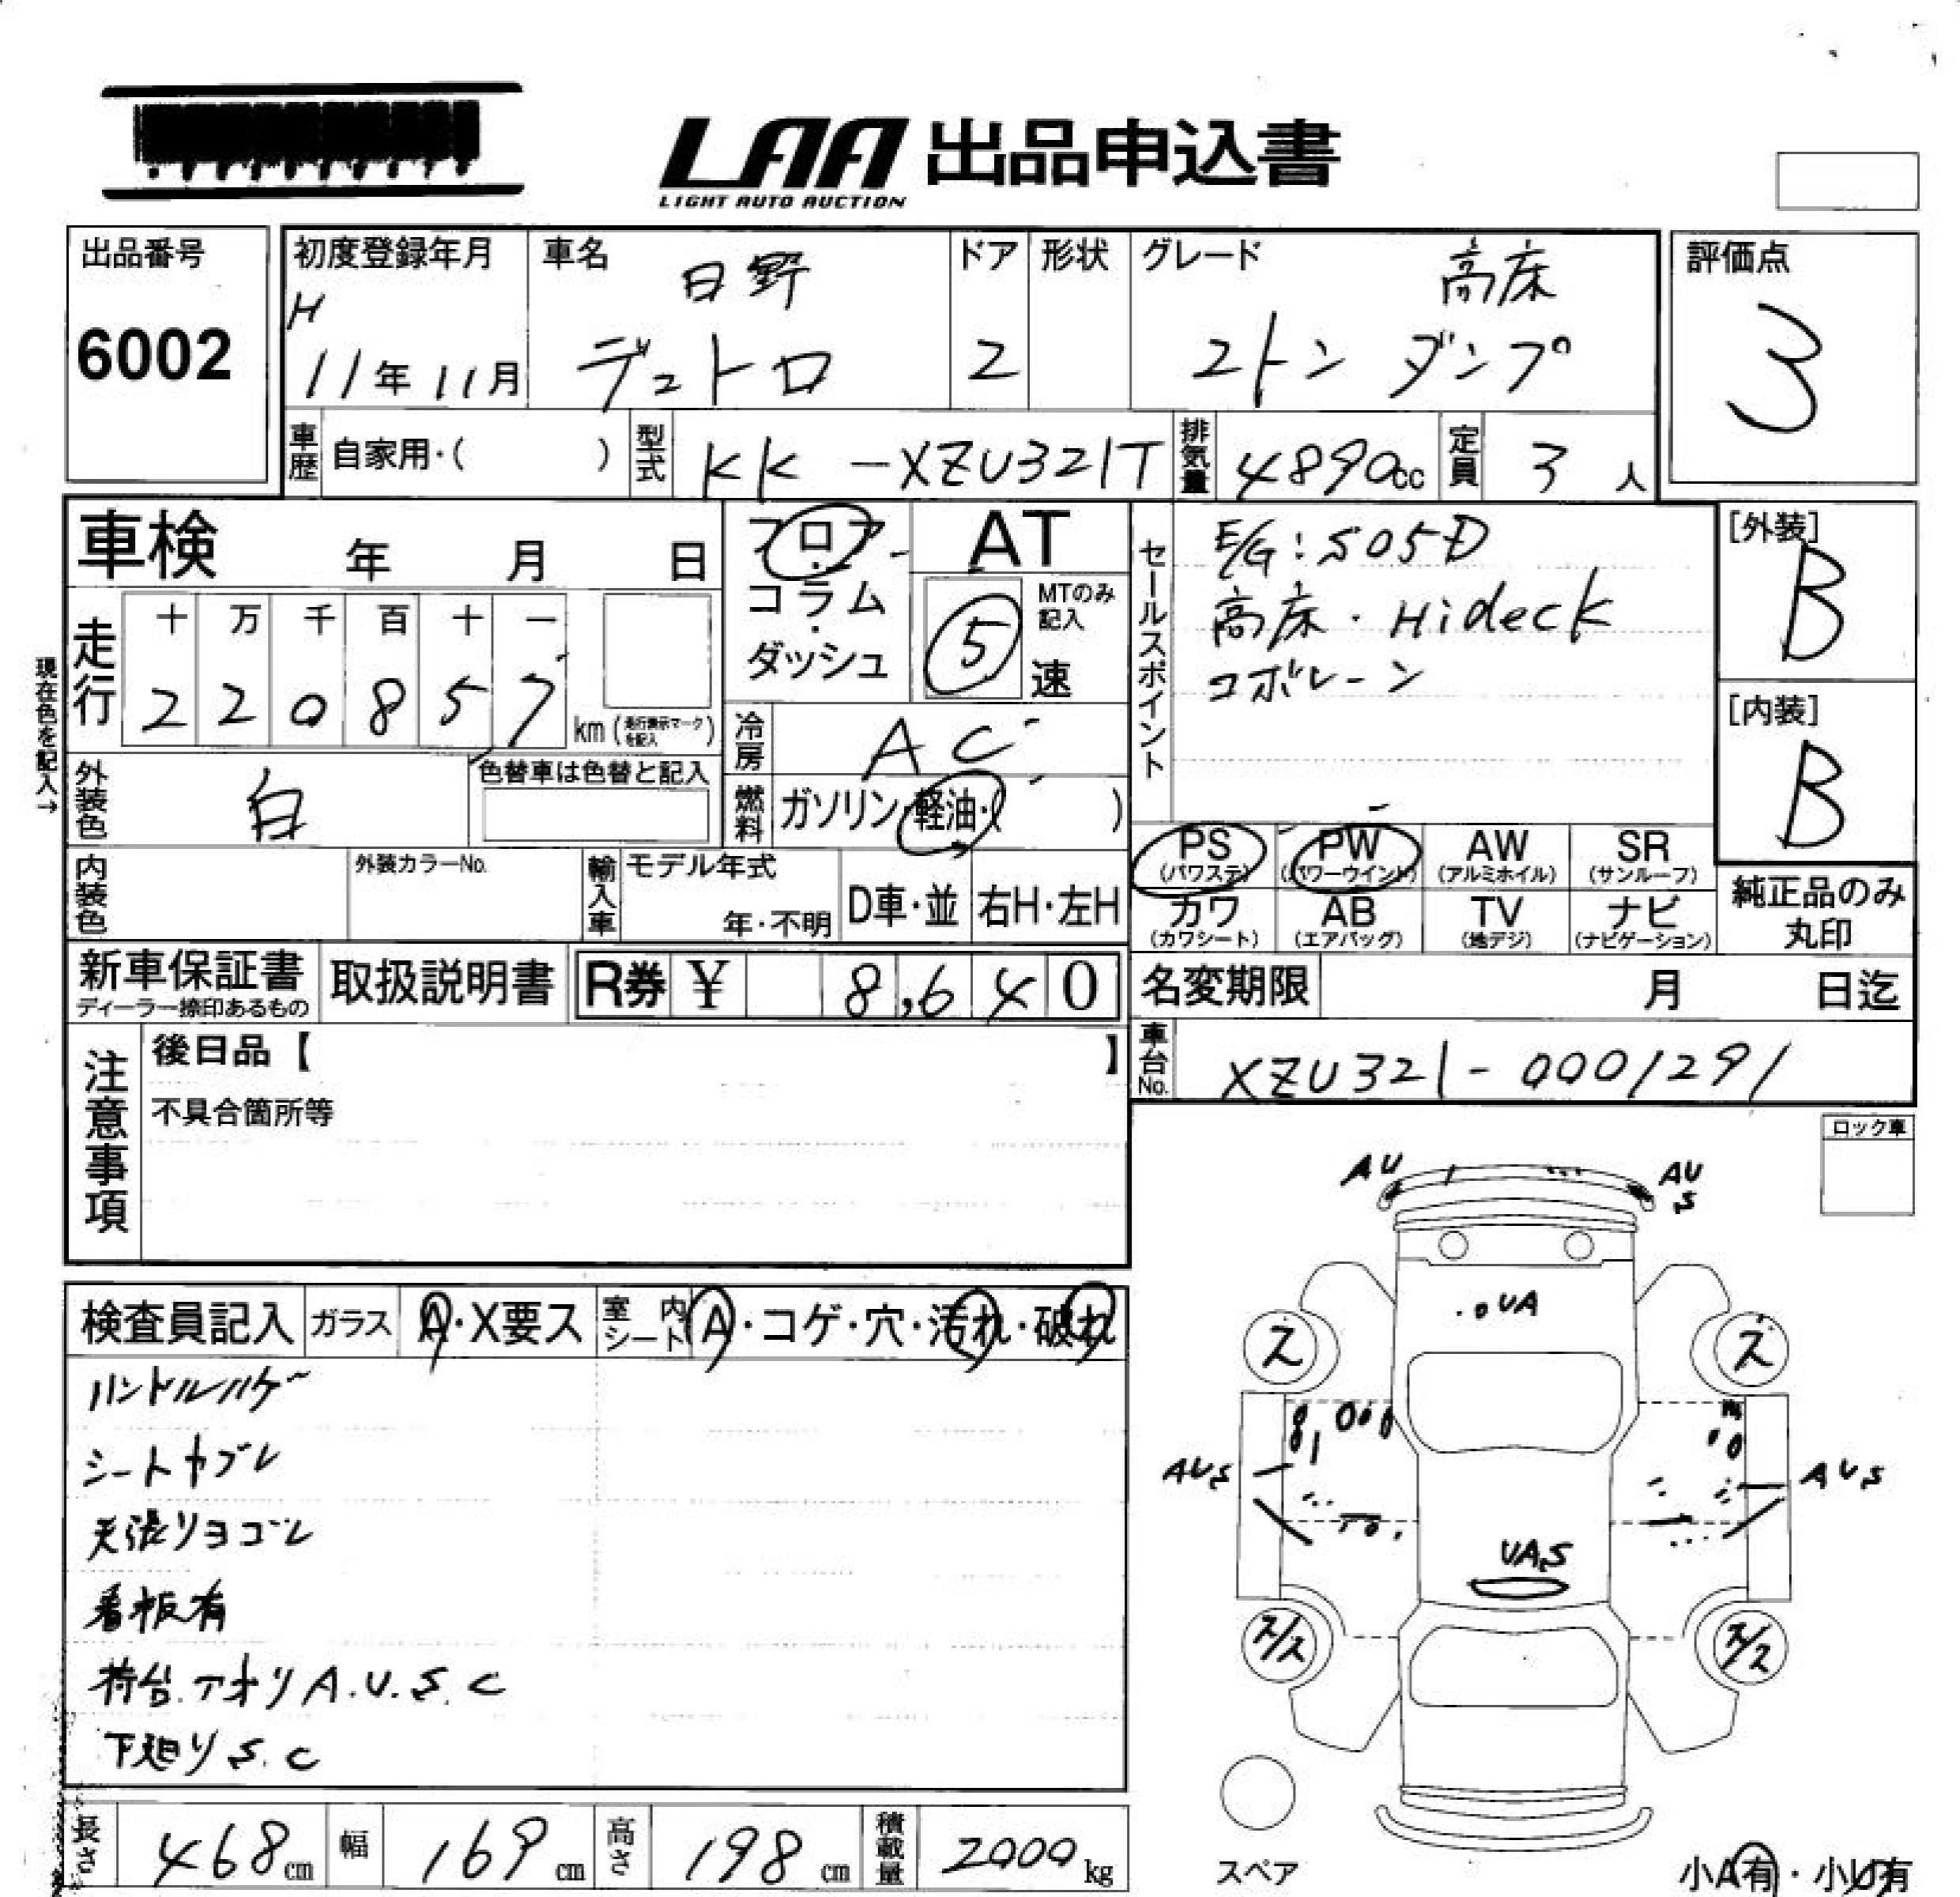 LAA 出品申込書
LIGHT AUTO AUCTION
出品番号
6002
初度登録年月
H
11年11月
車名
日野
デュトロ
ドア
2
形状
グレード
高床
2トン ダンプ
評価点
3
車歴 自家用・( )
型式 KK-XZU321T
排気量 4890cc
定員 3人
車検 年 月 日
現在色を記入→
走行
十 万 千 百 十 一
2 2 0 8 5 7
km (走行表示マークを記入)
フロア
・
コラム
・
ダッシュ
AT
MTのみ記入
5 速
冷房 AC
燃料 ガソリン・軽油・( )
外装色 白
色替車は色替と記入
内装色
外装カラーNo.
輸入車
モデル年式
年・不明
D車・並
右H・左H
セールスポイント
E/G:S05D
高床・Hideck
コボレーン
[外装]
B
[内装]
B
PS
(パワステ)
PW
(パワーウインド)
AW
(アルミホイル)
SR
(サンルーフ)
カワ
(カワシート)
AB
(エアバッグ)
TV
(地デジ)
ナビ
(ナビゲーション)
純正品のみ
丸印
新車保証書
ディーラー捺印あるもの
取扱説明書
R券 ¥ 8,640
名変期限 月 日迄
車台No. XZU321-0001291
注意事項
後日品【 】
不具合箇所等
ロック車
検査員記入
ガラス A・X要ス
室内シート A・コゲ・穴・汚れ・破れ
ハンドルハゲ
シートヤブレ
天張リヨゴレ
看板有
荷台.アオリ A.U.S.C
下廻リ S.C
AU
AU
S
UA
ス
ス
AUS
AUS
UAS
ス/ス
ス/ス
長さ 468cm
幅 169cm
高さ 198cm
積載量 2000kg
スペア
小A有・小U有